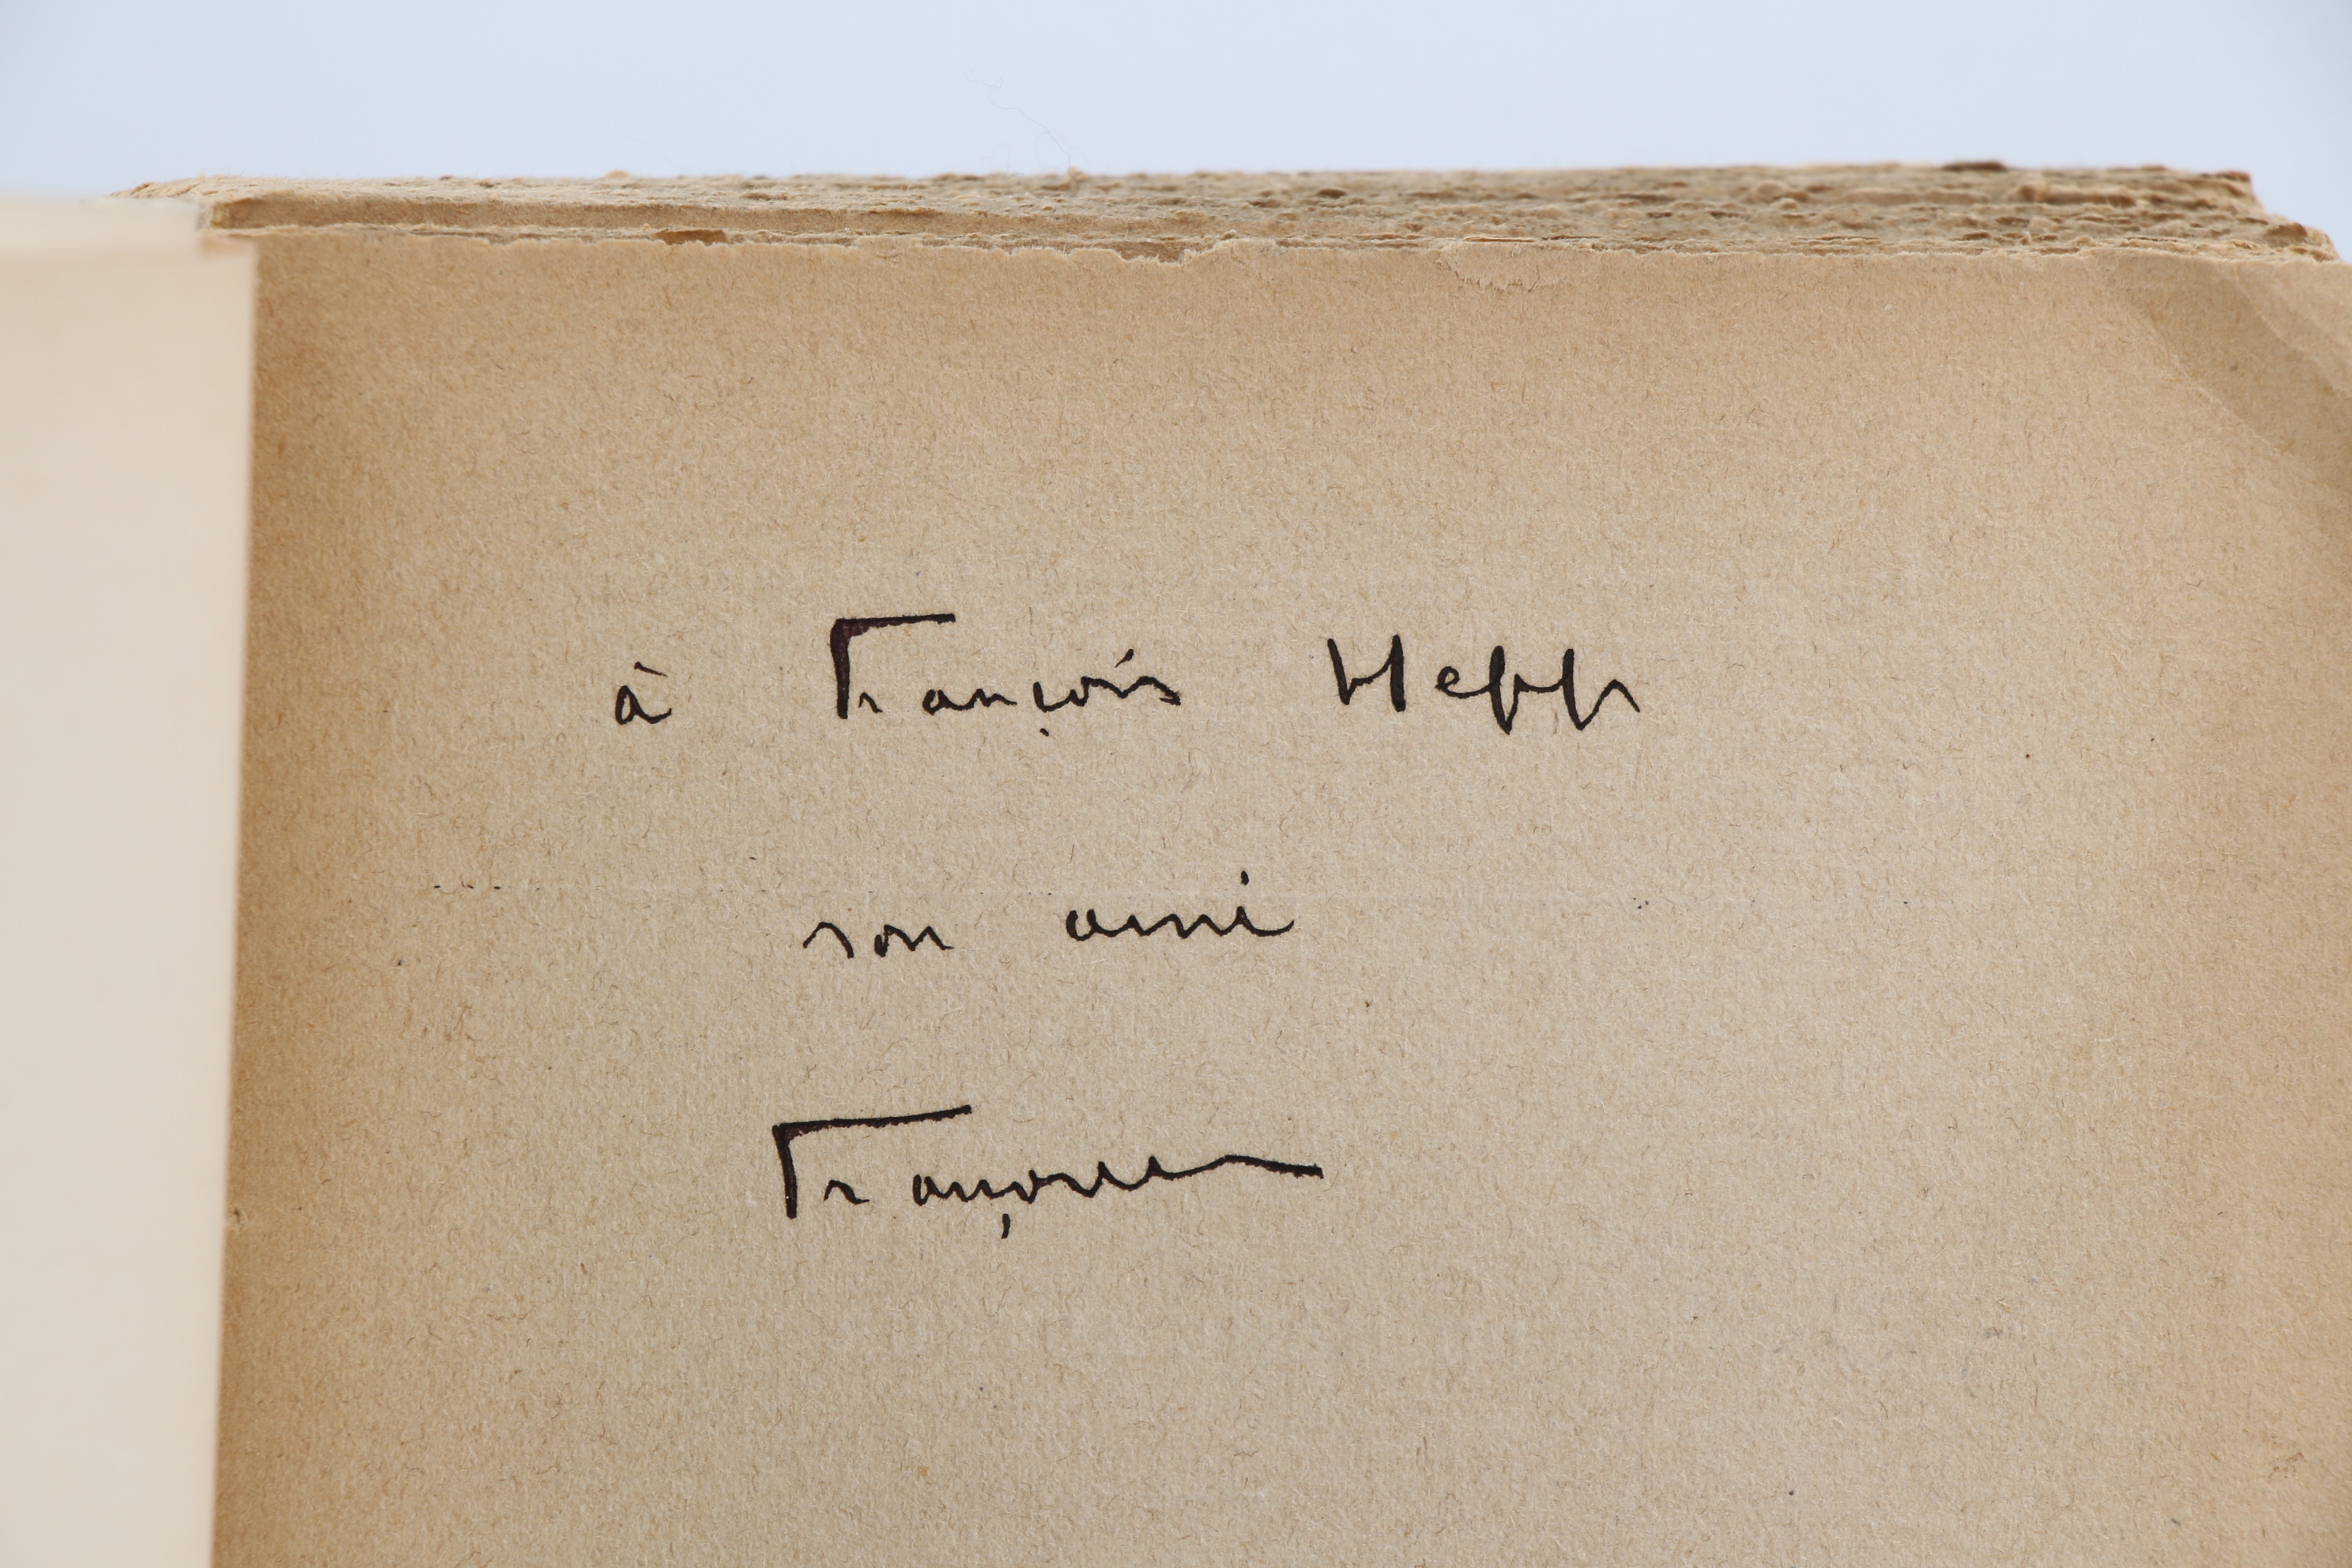 à François Hepp
son ami
François